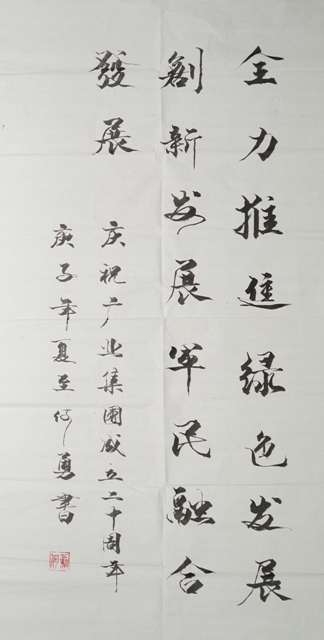 全力推進绿色发展
創新发展军民融合
發展
庆祝广业集團成立二十周年
庚子年夏至何勇書